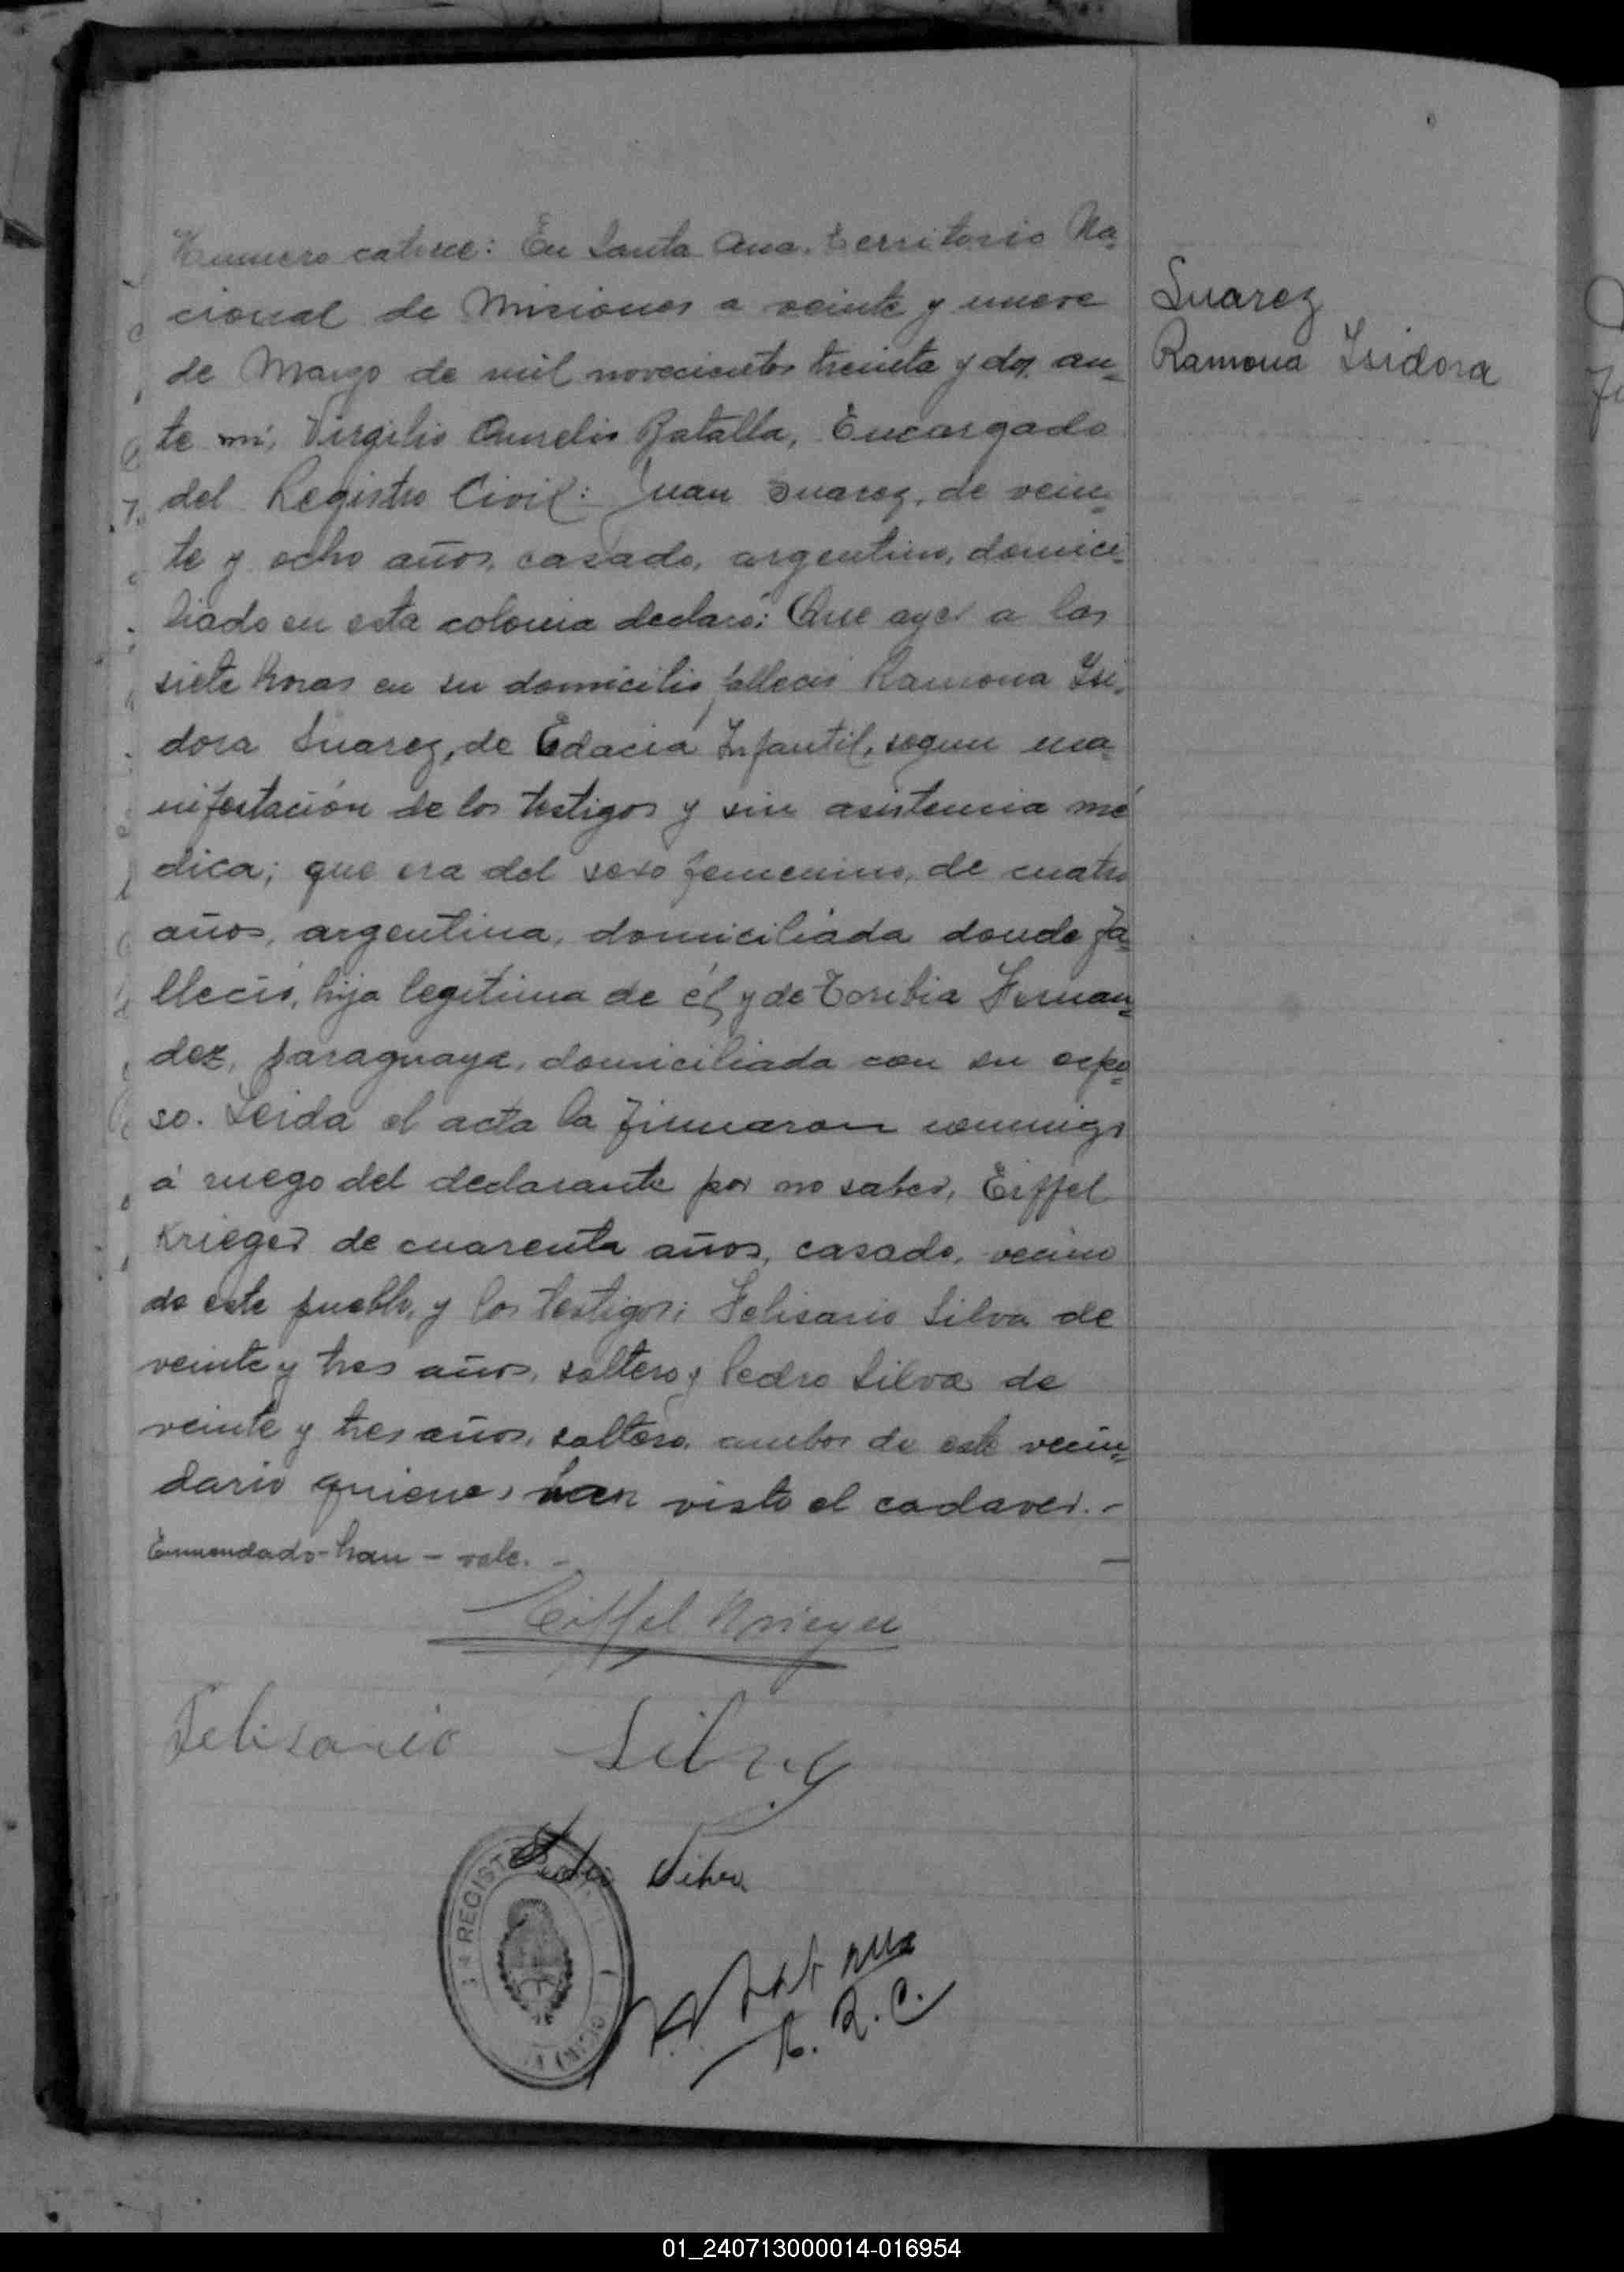 Numero catorce: En Santa Ana, Territorio Na-
cional de Misiones a veinte y nueve
de Marzo de mil novecientos treinta y dos, an-
te mi, Virgilio Aurelio Batalla, Encargado
del Registro Civil: Juan Suarez, de vein-
te y ocho años, casado, argentino, domici-
liado en esta colonia declaró: Que ayer a las
siete horas en su domicilio falleció Ramona Isi-
dora Suarez, de Edacia Infantil, segun ma-
nifestación de los testigos y sin asistencia mé
dica; que era del sexo femenino, de cuatro
años, argentina, domiciliada donde fa-
lleció, hija legitima de él y de Toribia Fernan-
dez, paraguaya, domiciliada con su espo-
so. Leida el acta la firmaron conmigo
á ruego del declarante por no saber, Eiffel
Krieger de cuarenta años, casado, vecino
de este pueblo, y los testigos: Felisario Silva de
veinte y tres años, soltero y Pedro Silva de
veinte y tres años, soltero, ambos de este vecin-
dario quienes han visto el cadaver.-
Enmendado-han-vale.- —
Eiffel Krieger
Felisario Silva
Pedro Silva
REGIST
E. R. C.
Suarez
Ramona Isidora
01_240713000014-016954